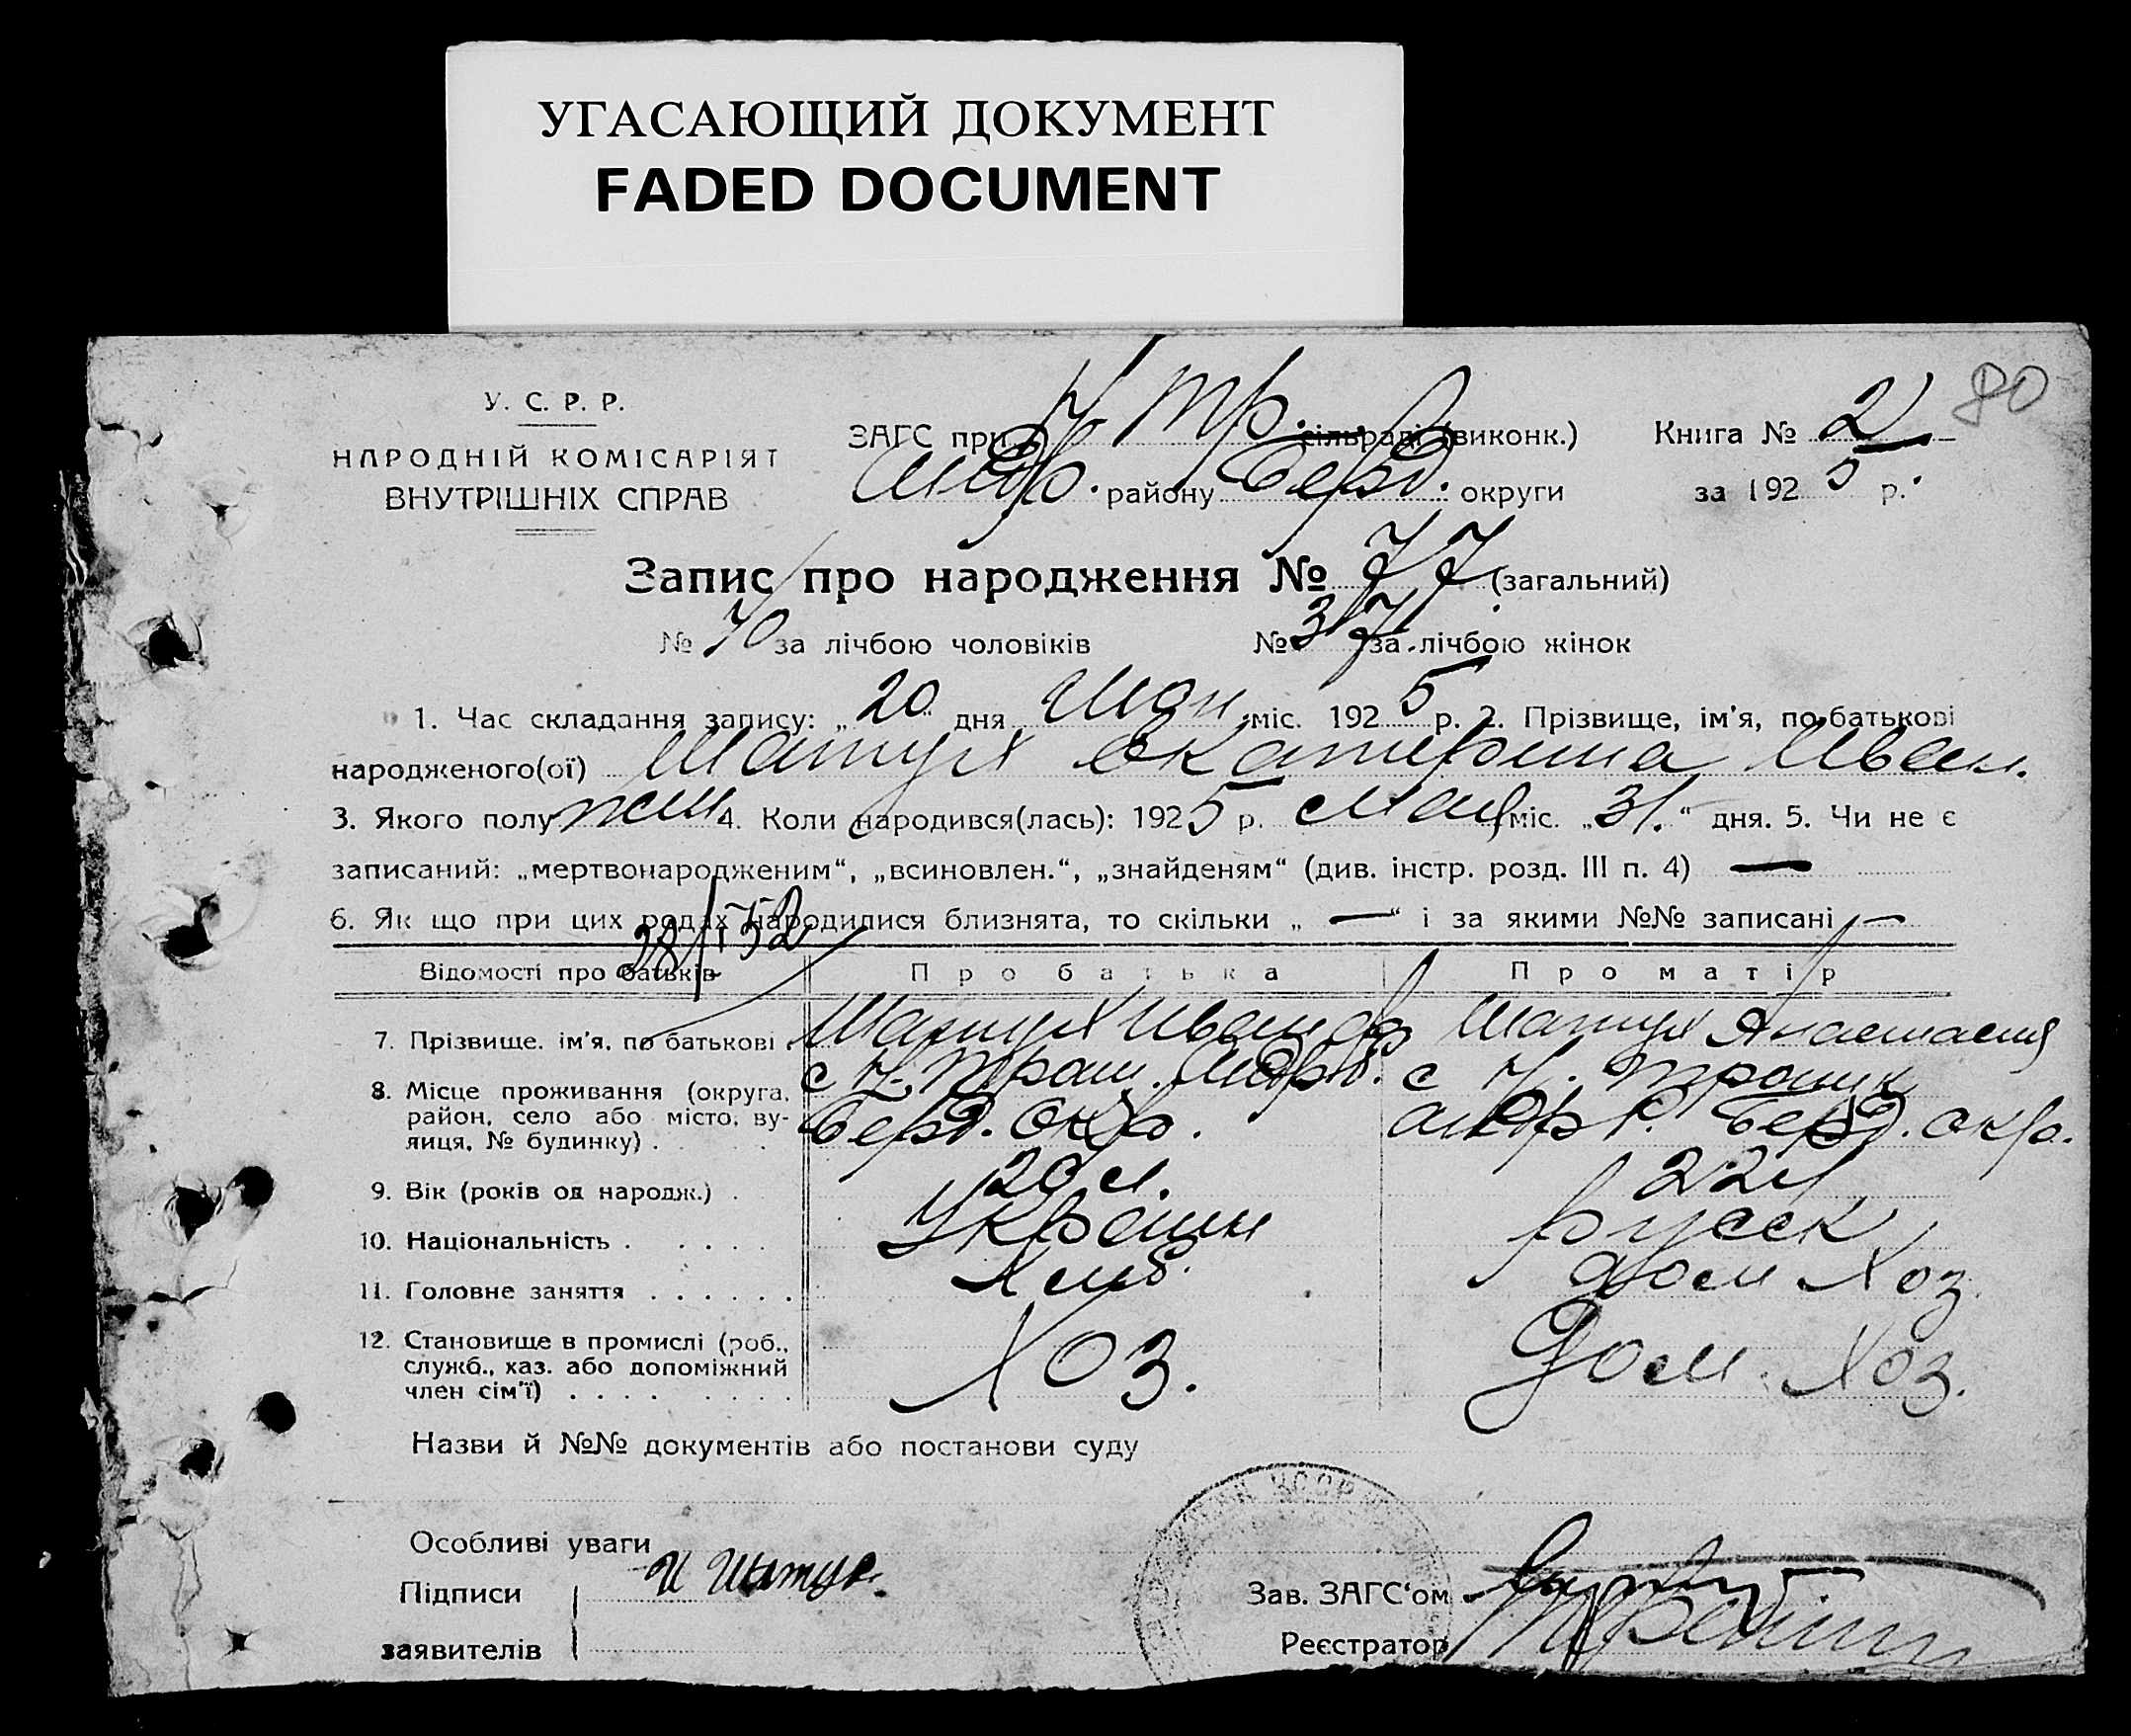 УГАСАЮЩИЙ ДОКУМЕНТ
FADED DOCUMENT
80
У. С. Р. Р.
НАРОДНІЙ КОМІСАРІЯТ
ВНУТРІШНІХ СПРАВ
ЗАГС при Н. Тр. сільраді (виконк.)
району Берд. округи
Книга № 2
за 1925 р.
Запис про народження № 77 (загальний)
№ 40 за лічбою чоловіків № 37 за лічбою жінок
1. Час складання запису: „20“ дня Июн міс. 1925 р. 2. Прізвище, ім'я, по батькові
народженого(ої) Шатух Екатерина Иван.
3. Якого полу жен. 4. Коли народився(лась): 1925 р. Мая міс. „31.“ дня. 5. Чи не є
записаний: „мертвонародженим“, „всиновлен.“, „знайденям“ (див. інстр. розд. III п. 4) —
6. Як що при цих родах народилися близнята, то скільки „ — “ і за якими №№ записані —
Відомості про батьків Про батька Про матір
7. Прізвище, ім'я, по батькові Шатух Иван Шатух Анастасия
8. Місце проживання (округа,
район, село або місто, ву-
лиця, № будинку)
с Н. Троиц.
Берд. Окр.
с Н. Троицк
Берд. окр.
9. Вік (років од народж.) 20 л. 22 л
10. Національність Украин русск
11. Головне заняття Хлиб. дом Хоз.
12. Становище в промислі (роб.,
служб., хаз. або допоміжний
член сім'ї)
Хоз. Дом. Хоз.
Назви й №№ документів або постанови суду
Особливі уваги
Підписи
заявителів
И Шатух
Зав. ЗАГС'ом
Реєстратор